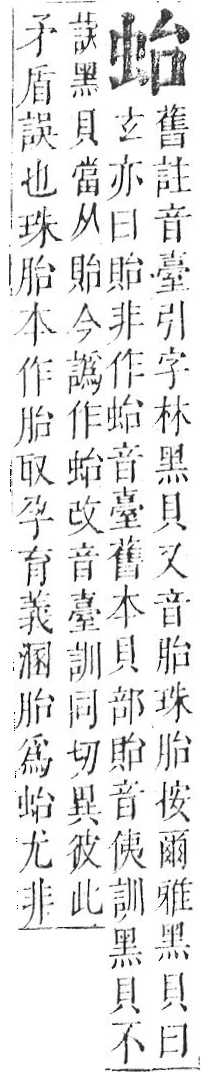 𧉟
舊註音臺引字林黑貝又音胎珠胎按爾雅黑貝曰
玄亦曰貽非作𧉟音臺舊本貝部貽音侇訓黑貝不
誤黑貝當从貽今譌作𧉟改音臺訓同切異彼此
矛盾誤也珠胎本作胎取孕育義溷胎爲𧉟尤非